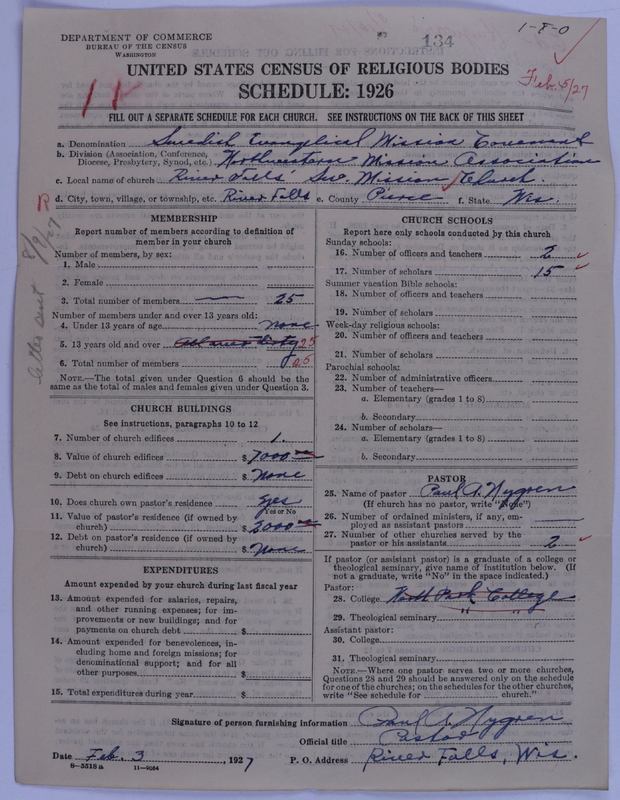 1-8-0
134
DEPARTMENT OF COMMERCE
BUREAU OF THE CENSUS
WASHINGTON
UNITED STATES CENSUS OF RELIGIOUS BODIES
SCHEDULE: 1926
Feb. 5/27
FILL OUT A SEPARATE SCHEDULE FOR EACH CHURCH. SEE INSTRUCTIONS ON THE BACK OF THIS SHEET
a. Denomination Swedish Evanglical Mission Covenant
b. Division (Association, Conference, Diocese, Presbytery, Synod, etc.) Northwestern Mission Association
c. Local name of church River Falls' Sw. Mission Church.
d. City, town, village, or township, etc. River Falls e. County Pierce f. State Wis.
letter sent 8/9/27
MEMBERSHIP
Report number of members according to definition of
member in your church
Number of members, by sex:
1. Male
2. Female
3. Total number of members 25
Number of members under and over 13 years old:
4. Under 13 years of age none
5. 13 years old and over 25
6. Total number of members 25
NOTE.—The total given under Question 6 should be the
same as the total of males and females given under Question 3.
CHURCH BUILDINGS
See instructions, paragraphs 10 to 12
7. Number of church edifices 1.
8. Value of church edifices $ 7000
9. Debt on church edifices $ None
10. Does church own pastor's residence yes
Yes or No
11. Value of pastor's residence (if owned by
church) $ 3000
12. Debt on pastor's residence (if owned by
church) $ None
EXPENDITURES
Amount expended by your church during last fiscal year
13. Amount expended for salaries, repairs,
and other running expenses; for im-
provements or new buildings; and for
payments on church debt $
14. Amount expended for benevolences, in-
cluding home and foreign missions; for
denominational support; and for all
other purposes $
15. Total expenditures during year $
CHURCH SCHOOLS
Report here only schools conducted by this church
Sunday schools:
16. Number of officers and teachers 2
17. Number of scholars 15
Summer vacation Bible schools:
18. Number of officers and teachers
19. Number of scholars
Week-day religious schools:
20. Number of officers and teachers
21. Number of scholars
Parochial schools:
22. Number of administrative officers
23. Number of teachers—
a. Elementary (grades 1 to 8)
b. Secondary
24. Number of scholars—
a. Elementary (grades 1 to 8)
b. Secondary
PASTOR
25. Name of pastor Paul A. Nygren
(If church has no pastor, write "None")
26. Number of ordained ministers, if any, em-
ployed as assistant pastors
27. Number of other churches served by the
pastor or his assistants 2
If pastor (or assistant pastor) is a graduate of a college or
theological seminary, give name of institution below. (If
not a graduate, write "No" in the space indicated.)
Pastor:
28. College North Park College
29. Theological seminary " "
Assistant pastor:
30. College
31. Theological seminary
NOTE.—Where one pastor serves two or more churches,
Questions 28 and 29 should be answered only on the schedule
for one of the churches; on the schedules for the other churches,
write "See schedule for church."
Signature of person furnishing information Paul A. Nygren
Official title Pastor
Date Feb. 3, 1927 P. O. Address River Falls, Wis.
8—5518a 11—9054